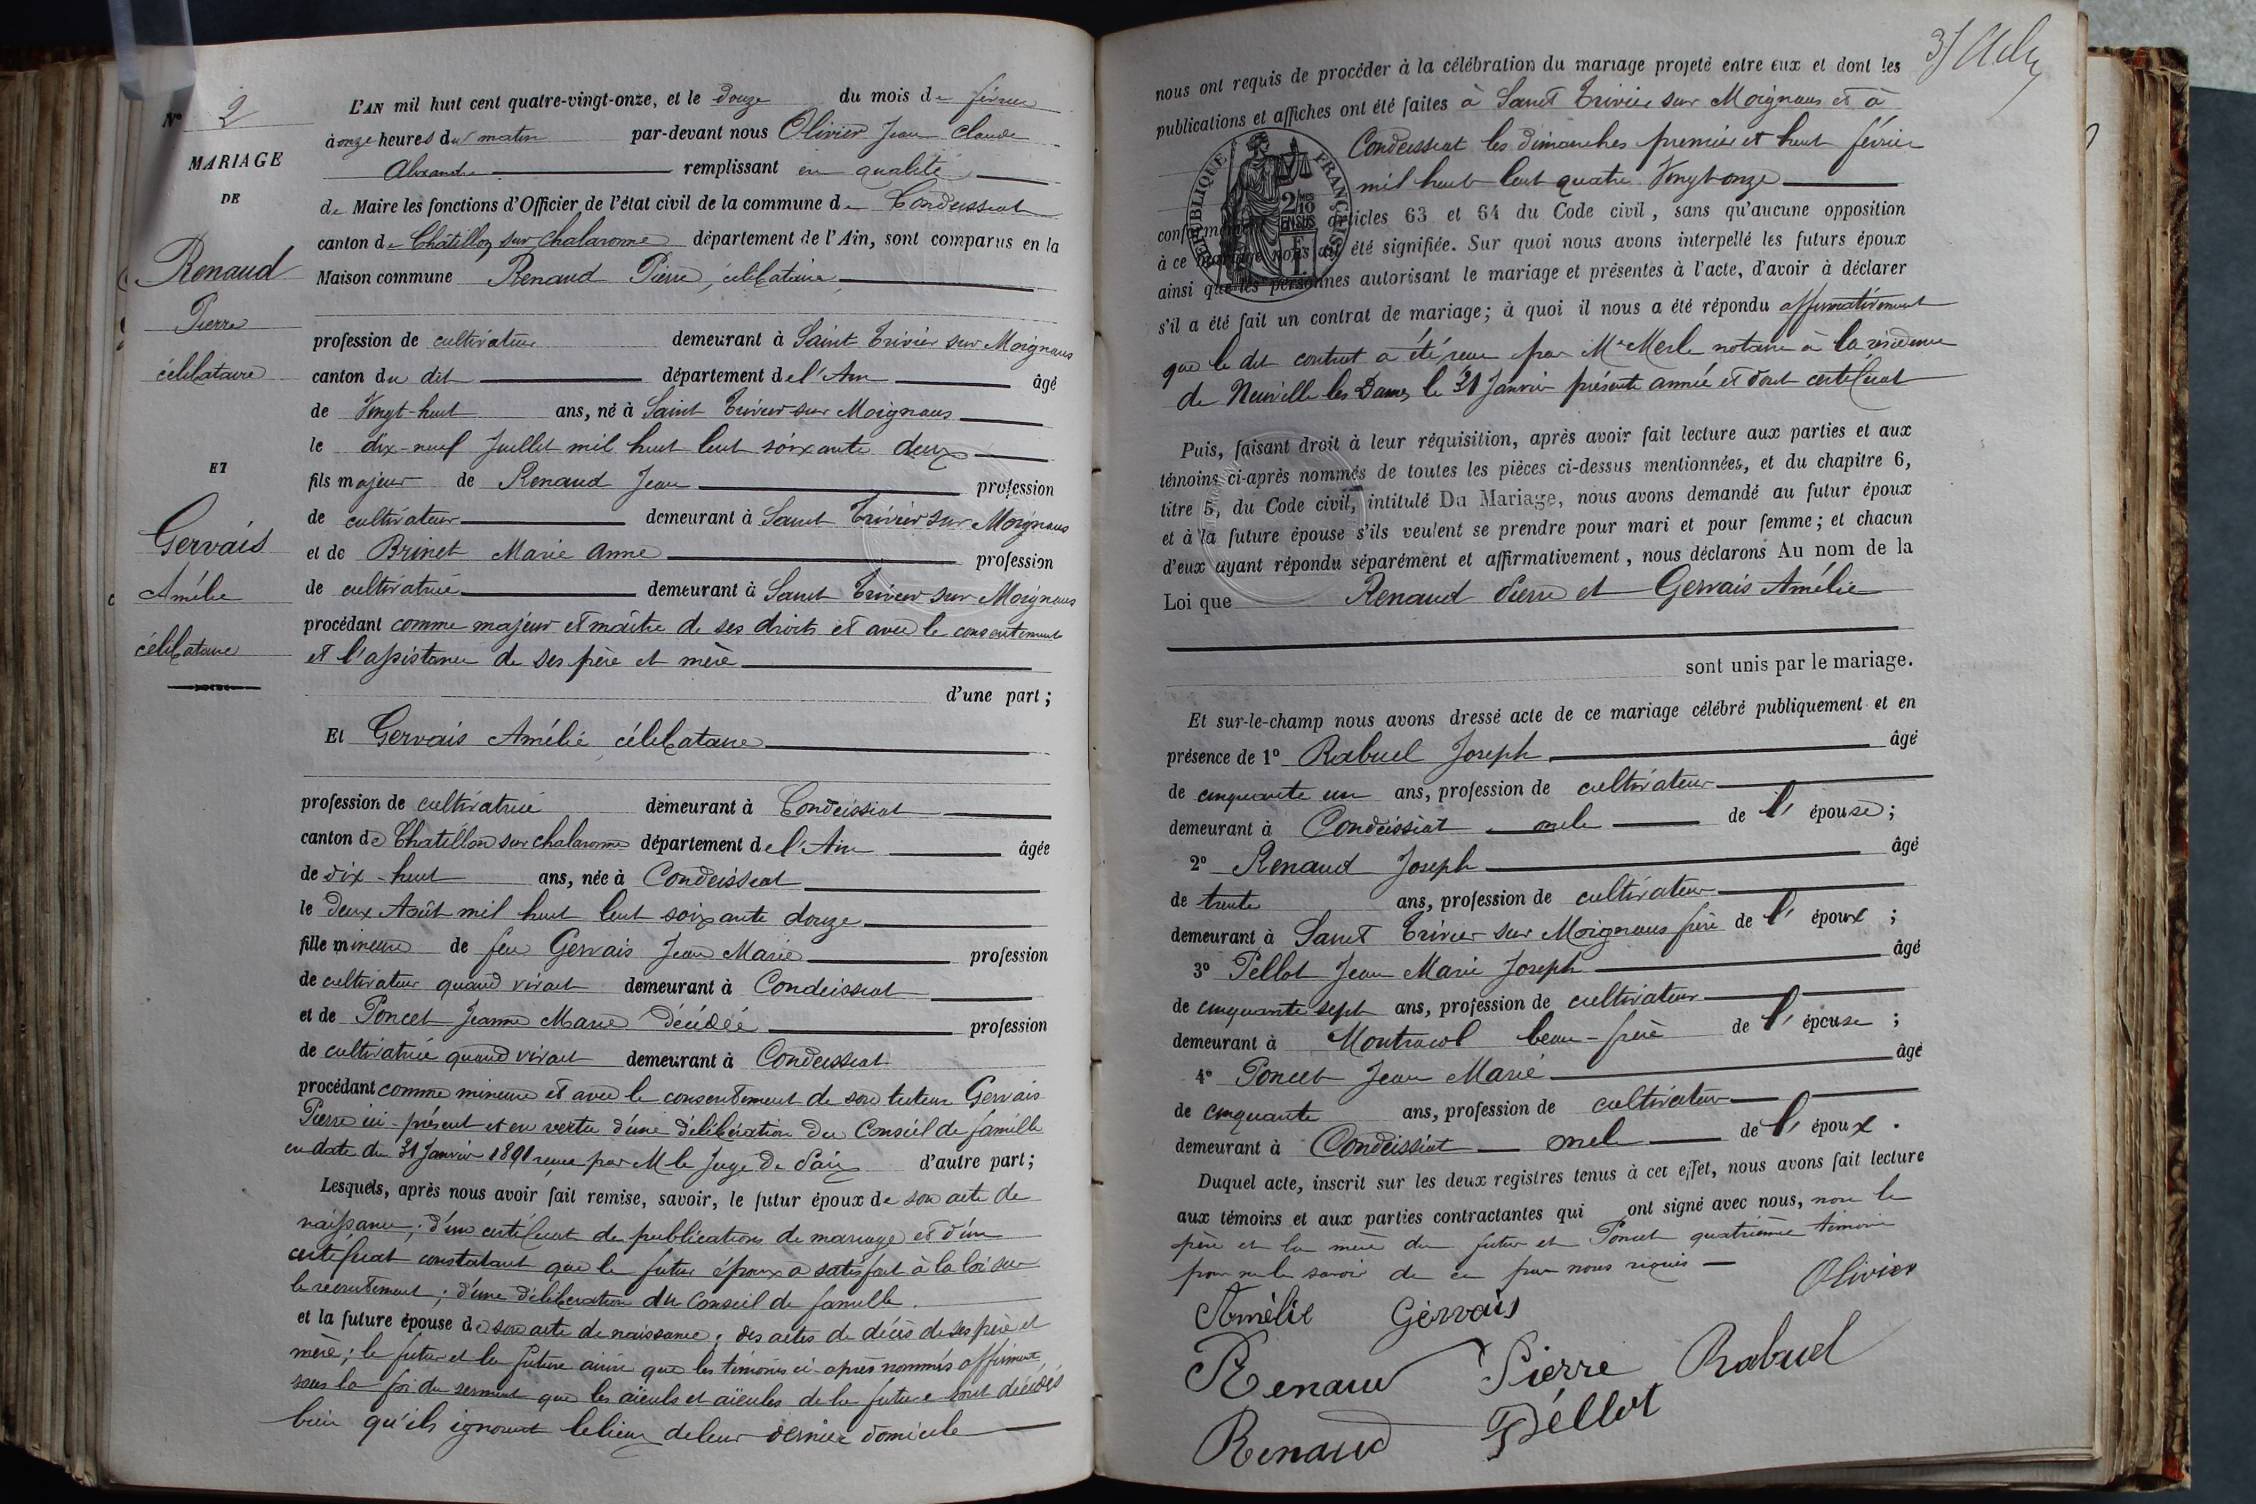 N° 2
MARIAGE
DE
Renaud
Pierre
célibataire
ET
Gervais
Amélie
célibataire
L'AN mil huit cent quatre-vingt-onze, et le douze du mois de février
à onze heures du matin par-devant nous Olivier Jean Claude
Alexandre remplissant en qualité
de Maire les fonctions d'Officier de l'état civil de la commune de Condeissiat
canton de Châtillon sur Chalaronne département de l'Ain, sont comparus en la
Maison commune Renaud Pierre, célibataire,
profession de cultivateur demeurant à Saint Trivier sur Moignans
canton du dit département de l'Ain âgé
de Vingt-huit ans, né à Saint Trivier sur Moignans
le dix-neuf Juillet mil huit cent soixante deux
fils majeur de Renaud Jean profession
de cultivateur demeurant à Saint Trivier sur Moignans
et de Brinet Marie Anne profession
de cultivatrice demeurant à Saint Trivier sur Moignans
procédant comme majeur et maître de ses droits et avec le consentement
et l'assistance de ses père et mère
d'une part;
Et Gervais Amélie célibataire
profession de cultivatrice demeurant à Condeissiat
canton de Chatillon sur chalaronne département de l'Ain âgée
de dix-huit ans, née à Condeissiat
le deux Août mil huit cent soixante douze
fille mineure de feu Gervais Jean Marie profession
de cultivateur quand vivait demeurant à Condeissiat
et de Poncet Jeanne Marie décédée profession
de cultivatrice quand vivait demeurant à Condeissiat
procédant comme mineure et avec le consentement de son tuteur Gervais
Pierre ici-présent et en vertu d'une délibération du Conseil de famille
en date du 31 Janvier 1891 reçue par M le Juge de Paix d'autre part;
Lesquels, après nous avoir fait remise, savoir, le futur époux de son acte de
naissance; d'un certificat de publications de mariage et d'un
certificat constatant que le futur époux a satisfait à la loi sur
le recrutement; d'une délibération du Conseil de famille.
et la future épouse de son acte de naissance; des actes de décès de ses père et
mère; le futur et la future ainsi que les témoins ci-après nommés affirment
sous la foi du serment que les aïeuls et aïeules de la future sont décédés
bien qu'ils ignorent le lieu de leur dernier domicile
nous ont requis de procéder à la célébration du mariage projeté entre eux et dont les
publications et affiches ont été faites à Saint Trivier sur Moignans et à
Condeissiat les dimanches premier et huit février
mil huit cent quatre Vingt onze
RÉPUBLIQUE FRANÇAISE
2/10 EN SUS
conformément articles 63 et 64 du Code civil, sans qu'aucune opposition
à ce mariage nous ait été signifiée. Sur quoi nous avons interpellé les futurs époux
ainsi que les personnes autorisant le mariage et présentes à l'acte, d'avoir à déclarer
s'il a été fait un contrat de mariage; à quoi il nous a été répondu affirmativement
que le dit contrat a été reçu par Me Merle notaire à la résidence
de Neuville les Dames le 31 Janvier présente année et dont certificat
Puis, faisant droit à leur réquisition, après avoir fait lecture aux parties et aux
témoins ci-après nommés de toutes les pièces ci-dessus mentionnées, et du chapitre 6,
titre 5, du Code civil, intitulé Du Mariage, nous avons demandé au futur époux
et à la future épouse s'ils veulent se prendre pour mari et pour femme; et chacun
d'eux ayant répondu séparément et affirmativement, nous déclarons Au nom de la
Loi que Renaud Pierre et Gervais Amélie
sont unis par le mariage.
Et sur-le-champ nous avons dressé acte de ce mariage célébré publiquement et en
présence de 1° Rabuel Joseph âgé
de cinquante un ans, profession de cultivateur
demeurant à Condeissiat oncle de l'épouse;
2° Renaud Joseph âgé
de trente ans, profession de cultivateur
demeurant à Saint Trivier sur Moignans frère de l'époux;
3° Pellot Jean Marie Joseph âgé
de cinquante sept ans, profession de cultivateur
demeurant à Montracol beau-frère de l'épouse;
4° Poncet Jean Marie âgé
de cinquante ans, profession de cultivateur
demeurant à Condeissiat oncle de l'époux.
Duquel acte, inscrit sur les deux registres tenus à cet effet, nous avons fait lecture
aux témoins et aux parties contractantes qui ont signé avec nous, non le
père et la mère du futur et Poncet quatrième témoin
pour ne le savoir de ce par nous requis
Olivier
Amélie Gervais
Renaud Pierre Rabuel
Renaud Péllot